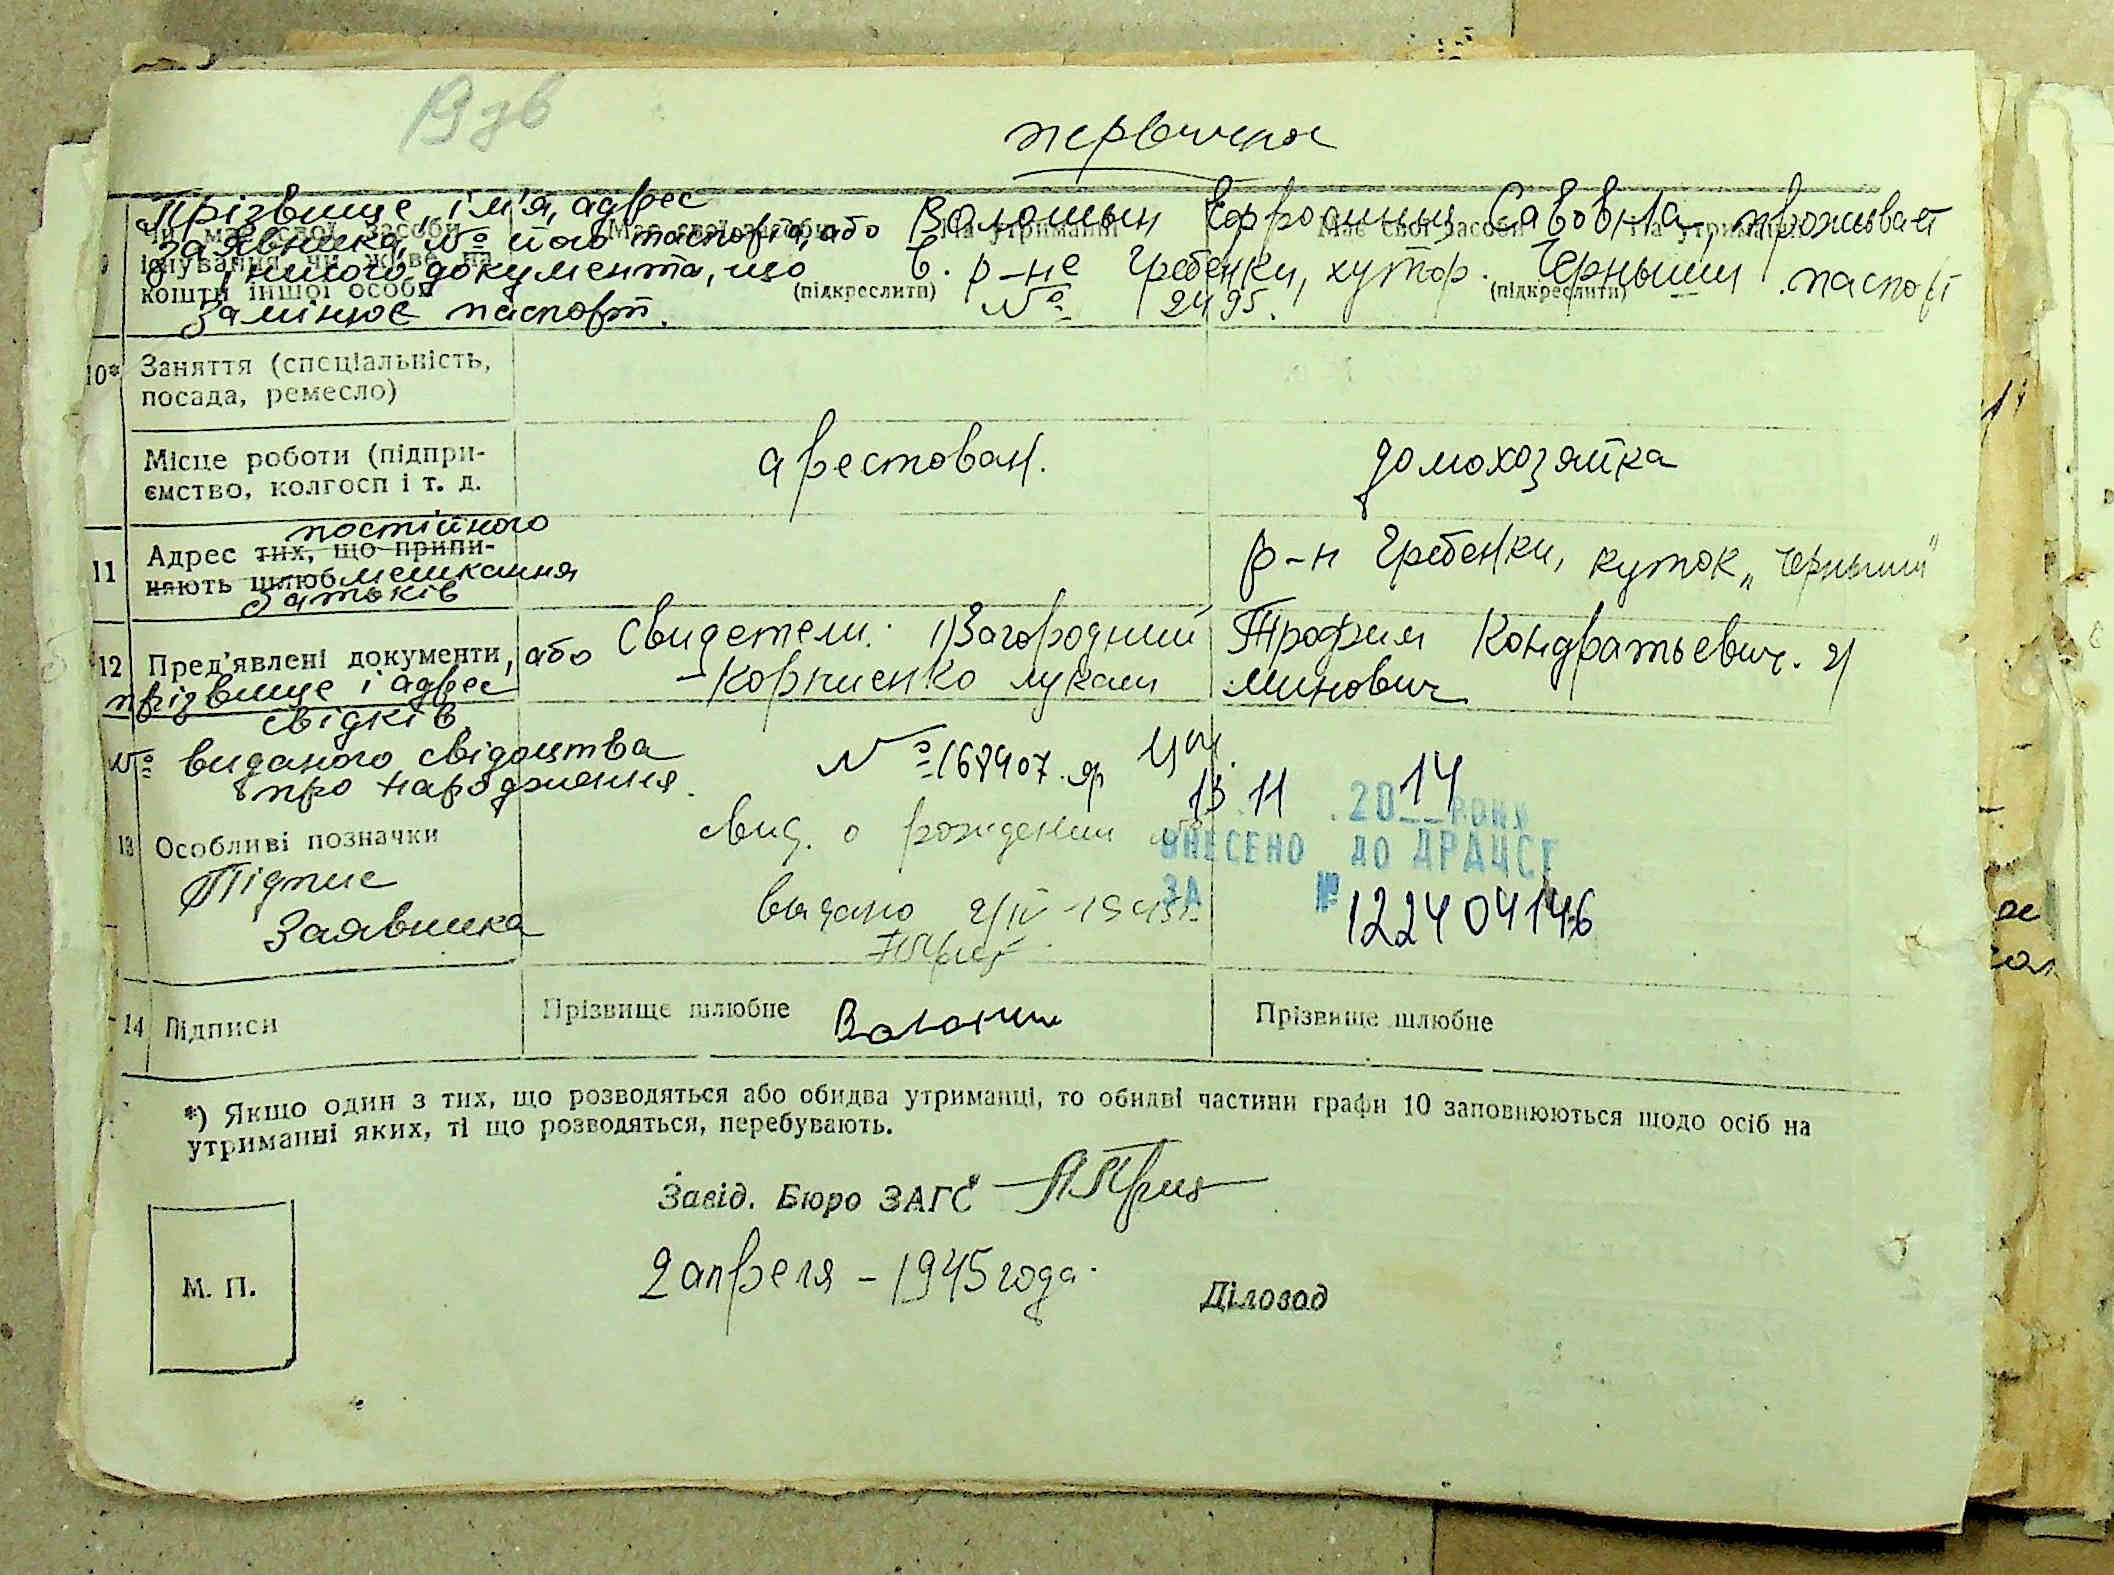 первична
Прізвище, ім'я, адрес
Чи має свої засоби
Має свої засоби На утриманні
Має свої засоби На утриманні
заявника, № його паспорта, або Волошын Ефросинья Савовна, проживает
9 існування чи живе на
іншого документа, що в. р-не Гребенки, хутор. Черныши паспорт
кошти іншої особи (підкреслити) (підкреслити)
замінює паспорт. № 2495.
10* Заняття (спеціальність,
посада, ремесло)
Місце роботи (підпри-
ємство, колгосп і т. д. арестован. домохозяйка
постійного
11 Адрес тих, що припи-
няють шлюб мешкання р-н Гребенки, куток „Черныши"
батьків
12 Пред'явлені документи, або Свидетели: 1) Загородний Трофим Кондратьевич. 2)
прізвище і адрес - Корниенко Лукаш Минович
свідків
№ виданого свідоцтва № 168407
про народження.
13 11 2014 року
13 Особливі позначки свид. о рождении
ВНЕСЕНО ДО ДРАЦСГ
Підпис выдано 2/IV-1945г.
ЗА № 1224 04146
Заявника
14 Підписи Прізвище шлюбне Волошин Прізвище шлюбне
*) Якщо один з тих, що розводяться або обидва утриманці, то обидві частини графи 10 заповнюються щодо осіб на
утриманні яких, ті що розводяться, перебувають.
Завід. Бюро ЗАГС
2 апреля - 1945 года.
М. П. Діловод